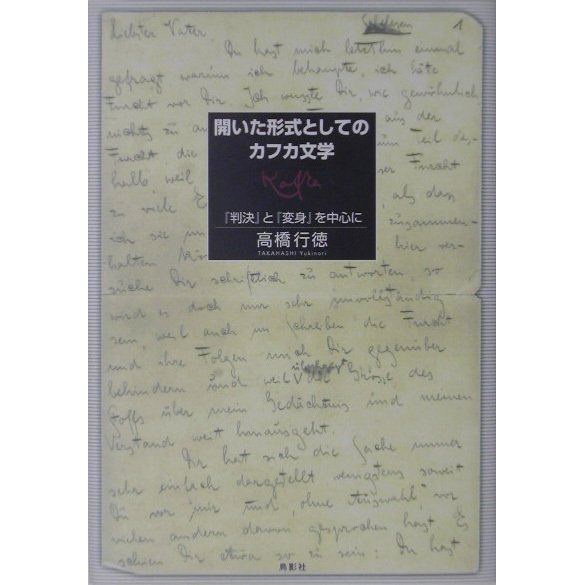 Liebster Vater,
Du hast mich letzthin einmal
gefragt, warum ich behaupte, ich hätte
Furcht vor Dir. Ich wusste Dir, wie gewöhnlich
nichts zu an
aus der
Furcht, die
Teil des-
halb, weil
zu viele E
als dass
ich sie im
zusammen-
halten
hier ver-
開いた形式としての
カフカ文学
Kafka
『判決』と『変身』を中心に
高橋行徳
TAKAHASHI Yukinori
suche Dir schriftlich zu antworten, so
wird es doch nur sehr unvollständig
sein, weil auch im Schreiben die Furcht
und ihre Folgen mich Dir gegenüber
behindern und weil die Grösse des
Stoffs über mein Gedächtnis und meinen
Verstand weit hinausgeht.
Dir hat sich die Sache immer
sehr einfach dargestellt, wenigstens soweit
Du vor mir und, ohne Auswahl, vor
vielen andern davon gesprochen hast. Es
schien Dir etwa so zu sein: Du hast
鳥影社